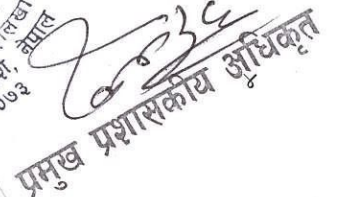 नेपाल
०७३
प्रमुख प्रशासकीय अधिकृत